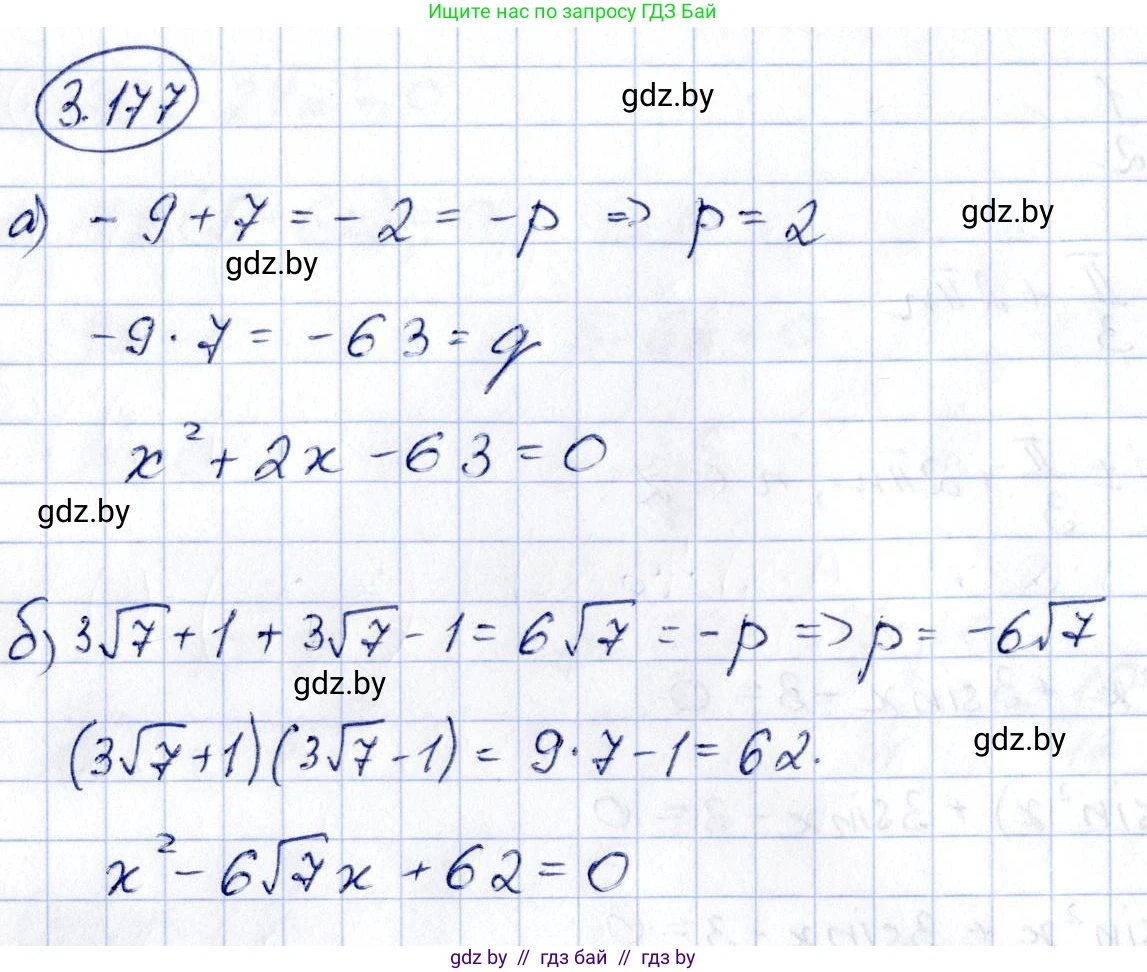 Ищите нас по запросу ГДЗ Бай
3.177
gdz.by
а) - 9 + 7 = - 2 = - p => p = 2
gdz.by
gdz.by
- 9 · 7 = - 63 = q
x² + 2x - 63 = 0
gdz.by
б) 3√7 + 1 + 3√7 - 1 = 6√7 = - p => p = - 6√7
gdz.by
(3√7 + 1)(3√7 - 1) = 9 · 7 - 1 = 62.
gdz.by
x² - 6√7x + 62 = 0
gdz.by // гдз бай // гдз by